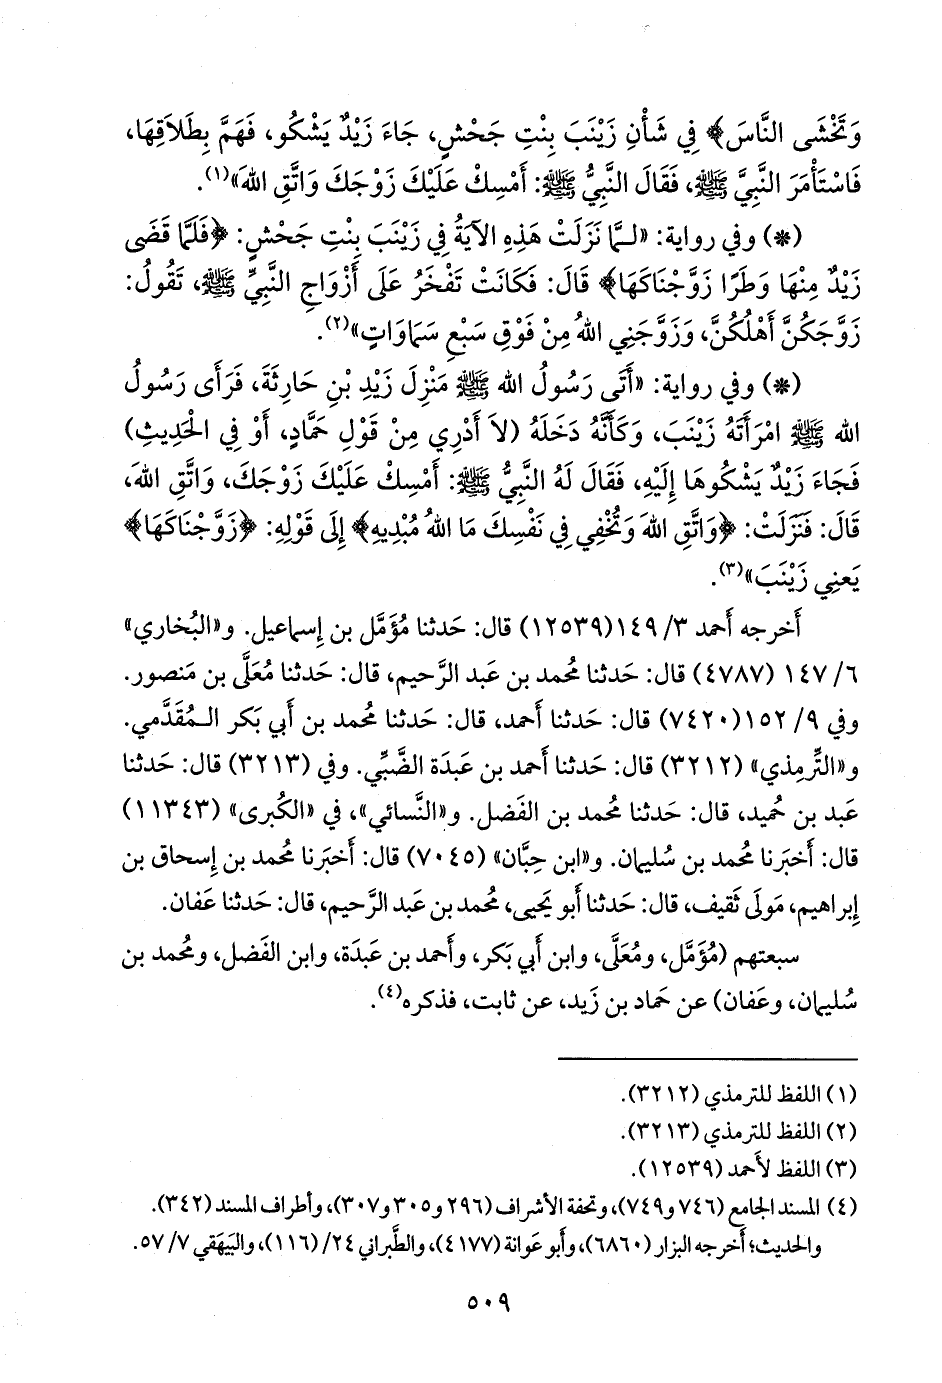 وَتَخْشَى النَّاسَ﴾ فِي شَأْنِ زَيْنَبَ بِنْتِ جَحْشٍ، جَاءَ زَيْدٌ يَشْكُو، فَهَمَّ بِطَلَاقِهَا،
فَاسْتَأْمَرَ النَّبِيَّ ﷺ، فَقَالَ النَّبِيُّ ﷺ: أَمْسِكْ عَلَيْكَ زَوْجَكَ وَاتَّقِ اللهَ»(١).
(*) وفي رواية: «لَـمَّا نَزَلَتْ هَذِهِ الآيَةُ فِي زَيْنَبَ بِنْتِ جَحْشٍ: ﴿فَلَمَّا قَضَى
زَيْدٌ مِنْهَا وَطَرًا زَوَّجْنَاكَهَا﴾ قَالَ: فَكَانَتْ تَفْخَرُ عَلَى أَزْوَاجِ النَّبِيِّ ﷺ، تَقُولُ:
زَوَّجَكُنَّ أَهْلُكُنَّ، وَزَوَّجَنِي اللهُ مِنْ فَوْقِ سَبْعِ سَمَاوَاتٍ»(٢).
(*) وفي رواية: «أَتَى رَسُولُ الله ﷺ مَنْزِلَ زَيْدِ بْنِ حَارِثَةَ، فَرَأَى رَسُولُ
الله ﷺ امْرَأَتَهُ زَيْنَبَ، وَكَأَنَّهُ دَخَلَهُ (لاَ أَدْرِي مِنْ قَوْلِ حَمَّادٍ، أَوْ فِي الْحَدِيثِ)
فَجَاءَ زَيْدٌ يَشْكُوهَا إِلَيْهِ، فَقَالَ لَهُ النَّبِيُّ ﷺ: أَمْسِكْ عَلَيْكَ زَوْجَكَ، وَاتَّقِ اللهَ،
قَالَ: فَنَزَلَتْ: ﴿وَاتَّقِ اللهَ وَتُخْفِي فِي نَفْسِكَ مَا اللهُ مُبْدِيهِ﴾ إِلَى قَوْلِهِ: ﴿زَوَّجْنَاكَهَا﴾
يَعنِي زَيْنَبَ»(٣).
أَخرجه أَحمد ٣/ ١٤٩(١٢٥٣٩) قال: حَدثنا مُؤَمَّل بن إِسماعيل. و«البُخاري»
٦/ ١٤٧ (٤٧٨٧) قال: حَدثنا مُحمد بن عَبد الرَّحيم، قال: حَدثنا مُعَلَّى بن مَنصور.
وفي ٩/ ١٥٢(٧٤٢٠) قال: حَدثنا أَحمد، قال: حَدثنا مُحمد بن أَبي بَكر الـمُقَدَّمي.
و«التِّرمِذي» (٣٢١٢) قال: حَدثنا أَحمد بن عَبدَة الضَّبِّي. وفي (٣٢١٣) قال: حَدثنا
عَبد بن حُميد، قال: حَدثنا مُحمد بن الفَضل. و«النَّسائي»، في «الكُبرى» (١١٣٤٣)
قال: أَخبَرنا مُحمد بن سُليمان. و«ابن حِبَّان» (٧٠٤٥) قال: أَخبَرنا مُحمد بن إِسحاق بن
إِبراهيم، مَولَى ثَقيف، قال: حَدثنا أَبو يَحيى، مُحمد بن عَبد الرَّحيم، قال: حَدثنا عَفان.
سبعتهم (مُؤَمَّل، ومُعَلَّى، وابن أَبي بَكر، وأَحمد بن عَبدَة، وابن الفَضل، ومُحمد بن
سُليمان، وعَفان) عن حَماد بن زَيد، عن ثابت، فذكره(٤).
(١) اللفظ للترمذي (٣٢١٢).
(٢) اللفظ للترمذي (٣٢١٣).
(٣) اللفظ لأَحمد (١٢٥٣٩).
(٤) المسند الجامع (٧٤٦ و٧٤٩)، وتحفة الأشراف (٢٩٦ و٣٠٥ و٣٠٧)، وأطراف المسند (٣٤٢).
والحديث؛ أخرجه البزار (٦٨٦٠)، وأبو عَوانة (٤١٧٧)، والطَّبراني ٢٤/ (١١٦)، والبَيهَقي ٧/ ٥٧.
٥٠٩